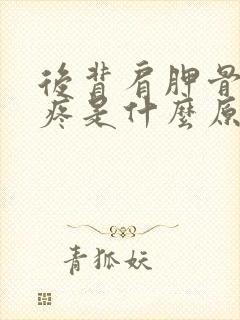 後背肩胛骨
疼是什麼原
青狐妖